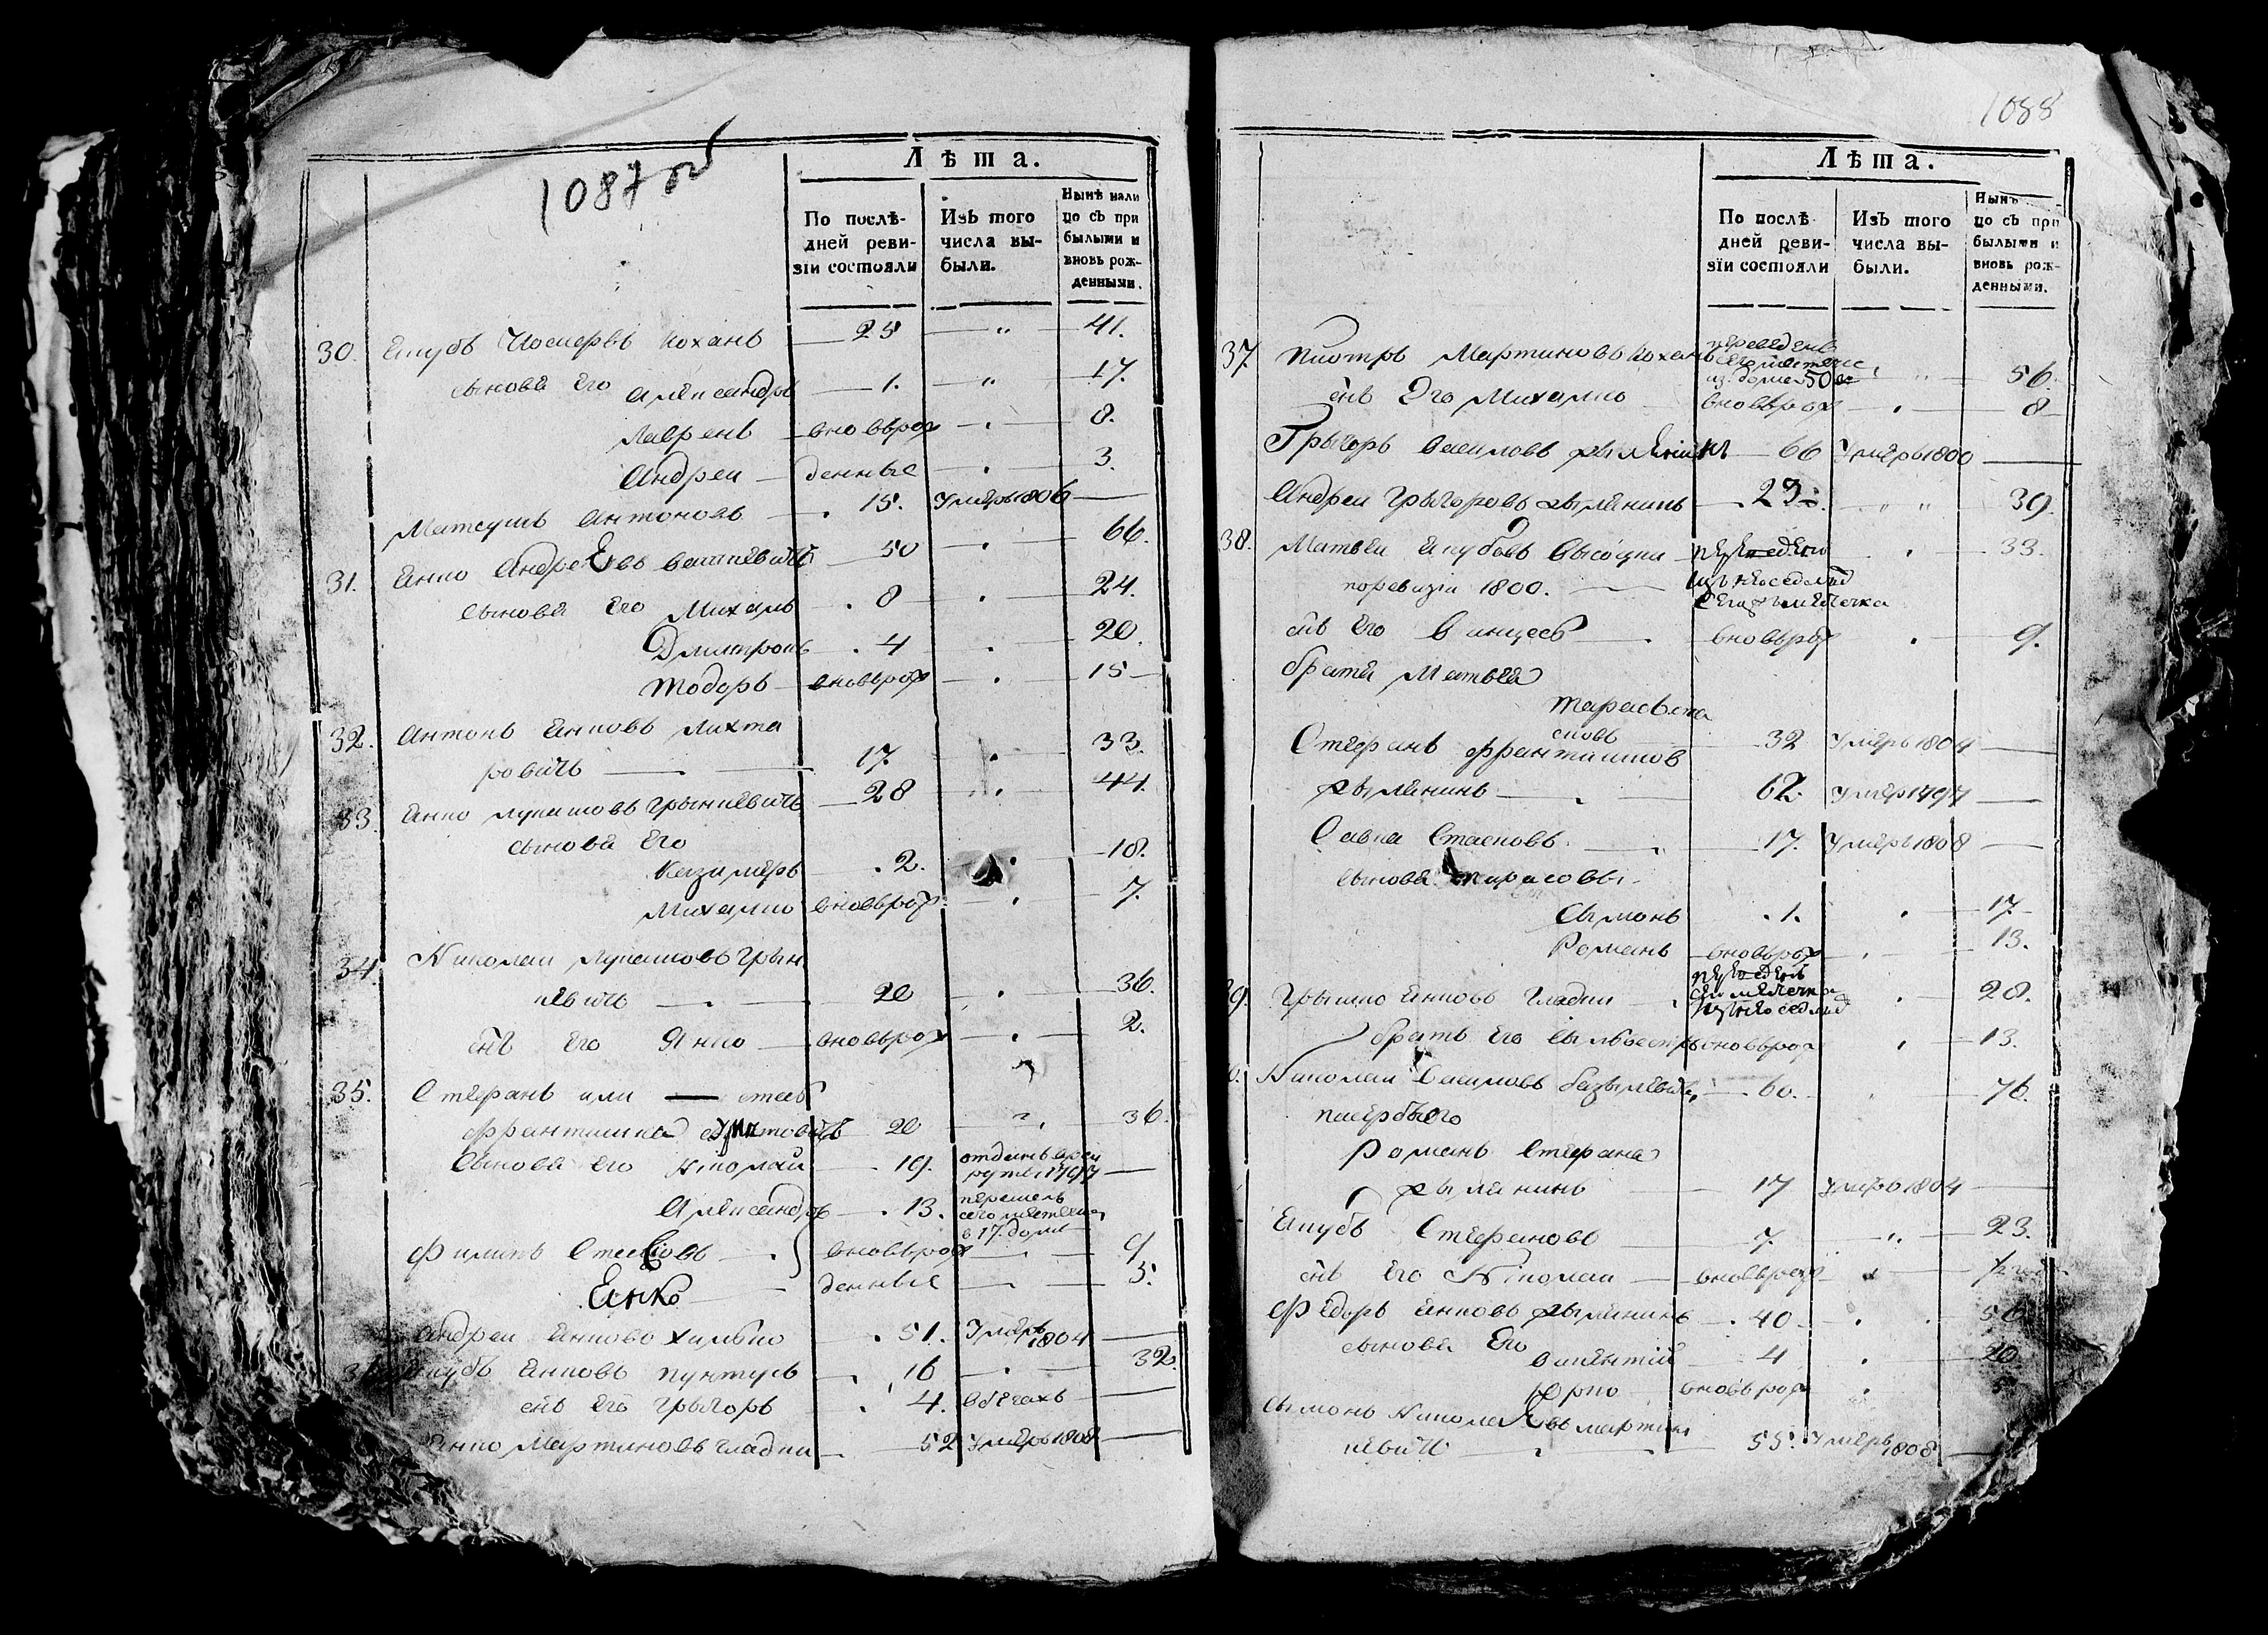 1087 об
Лѣта.
По послѣ-
дней реви-
зіи состояли
Изъ того
числа вы-
были.
Нынѣ нали
цо съ при
былыми и
вновь рож-
денными.
30. Якубъ Коханъ 25 41.
сынове его Александръ 1. 17.
Лавренъ вновьрож 8.
Андреи денные 3.
Матеушъ Антоновъ 15. Умеръ 1806
31. Янко Андреевъ 50 66.
сынове его Михалъ 8 24.
Дмитрокъ 4 20.
Тодоръ вновьрож 15
32. Антонъ Янковъ Лихта
ровичъ 17. 33.
33. Янко Лукашовъ Грынкевичъ 28 44.
сынове его
Казимеръ 2. 18.
Михалко вновьрож 7.
34. Николаи Лукашовъ Грын
кевичъ 20 36.
снъ его Янко вновьрож 2.
35. Стефанъ или Стесь
Францишка 20 36.
Сынове его Николай 19. отданъ врек
руты 1797
Александръ 13. перешелъ
сего местечка
в 17. домъ
Филипъ вновьрож 9
Янко денные 5.
Андреи Янковъ Химко 51. Умеръ 1804
Якубъ Янковъ Кунтушъ 16 32.
снъ его Грыгоръ 4. вбегахъ
Янко Мартиновъ Гладки 52 Умеръ 1808
1088
Лѣта.
По послѣ
дней реви-
зіи состояли
Изъ того
числа вы-
были.
Нынѣ
цо съ при
былыми и
вновь рож-
денными.
37. Пиотръ Мартиновъ Коханъ переведенъ
сего местечк
из дома 50 56.
снъ его Михалко вновьрож 8
Грыгоръ Василовъ 66 Умеръ 1800
Андреи Грыгоровъ Рымянинъ 23 39.
38. Матвеи Якубовъ Высоцки переведенъ 33.
поревизіи 1800. изъ
сегожъ местечка
снъ его Винцесь вновьрож 9.
братя Матвея
Тарасъ
Стефанъ 32 Умеръ 1804
Рымянинъ 62. Умеръ 1797
Савка Стасковъ 17. Умеръ 1808
сынове Тарасовы
Сымонъ 1. 17.
Романъ вновьрож 13.
Грышко Янковъ Гладки переведенъ
сего местечка 28.
братъ его Сыльвестръ вновьрож 13.
Николаи Василовъ Базылевичъ 60. 76.
пасербы его
Романъ Стефана
Рымянинъ 17 Умеръ 1804
Якубъ Стефановъ 7. 23.
снъ его Николаи вновьрож
Федоръ Янковъ Рымянинъ 40 56
сынове его
Викентій 4 20.
Юрко вновьрож
Сымонъ Николаевъ Мартин
кевичъ 55. Умеръ 1808